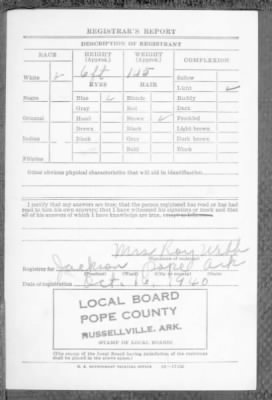 REGISTRAR'S REPORT
DESCRIPTION OF REGISTRANT
RACE HEIGHT (Approx.) WEIGHT (Approx.) COMPLEXION
White ✓ 6 ft 155 Sallow
EYES HAIR Light ✓
Negro Blue ✓ Blonde Ruddy
Gray Red Dark
Oriental Hazel Brown ✓ Freckled
Brown Black Light brown
Indian Black Gray Dark brown
Bald Black
Filipino
Other obvious physical characteristics that will aid in identification
I certify that my answers are true; that the person registered has read or has had
read to him his own answers; that I have witnessed his signature or mark and that
all of his answers of which I have knowledge are true, except as follows:
Mrs Roy Webb
(Signature of registrar)
Registrar for Jackson Pope Ark
(Precinct) (City or county) (State)
Date of registration Oct. 16, 1940
LOCAL BOARD
POPE COUNTY
RUSSELLVILLE, ARK.
(STAMP OF LOCAL BOARD)
(The stamp of the Local Board having jurisdiction of the registrant
shall be placed in the above space.)
U. S. GOVERNMENT PRINTING OFFICE